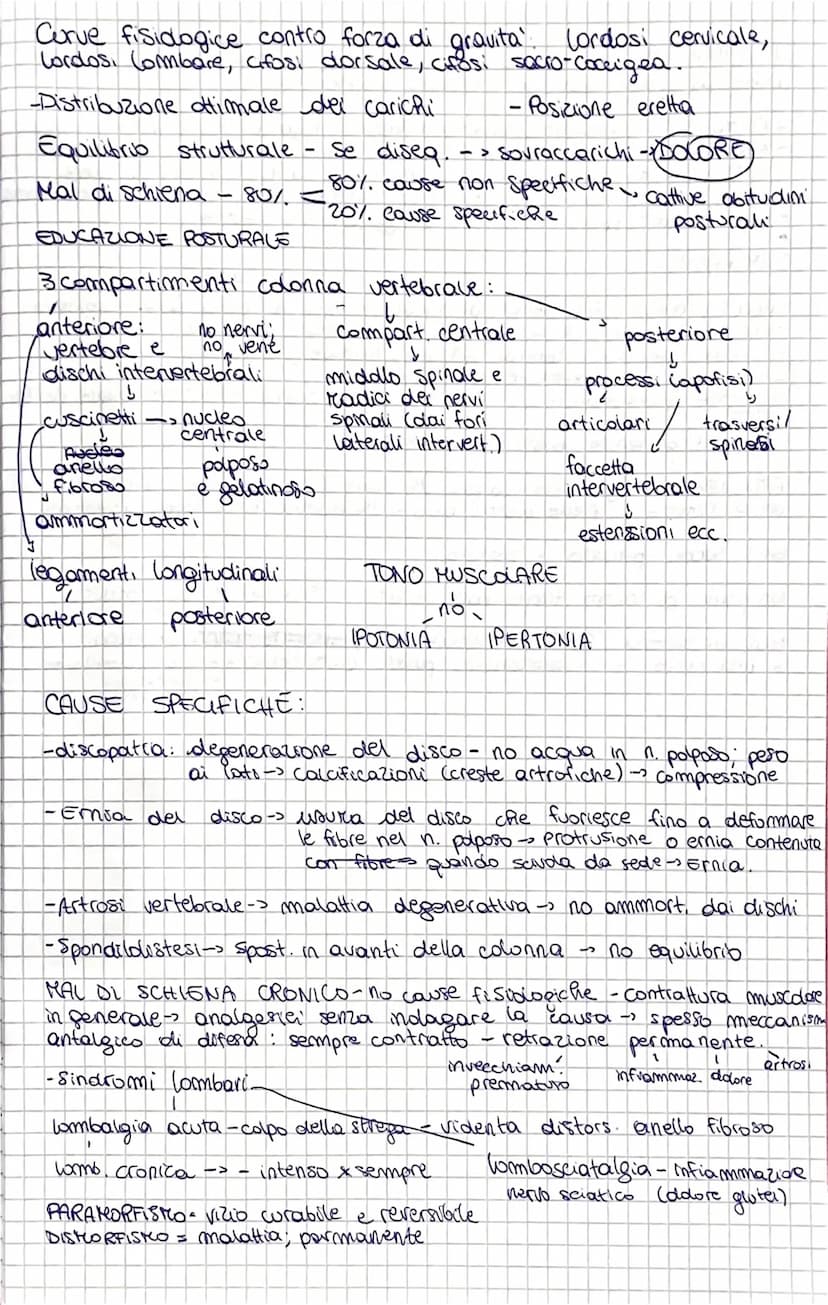 Curve fisiologice contro forza di gravita'. lordosi cervicale,
lordosi lombare, cifosi dorsale, cifosi sacro-coccigea.
-Distribuzione ottimale dei carichi - Posizione eretta
Equilibrio strutturale - se diseq. -> sovraccarichi -> DOLORE
Mal di schiena - 80% = 80% cause non specifiche -> cattive abitudini
20% cause specifiche posturali
EDUCAZIONE POSTURALE
3 compartimenti colonna vertebrale:
anteriore: no nervi; compart. centrale posteriore
vertebre e no vene
dischi intervertebrali midollo spinale e processi (apofisi)
radici dei nervi
cuscinetti -> nucleo spinali (dai fori articolari trasversi/
centrale laterali intervert.) spinosi
anello polposo faccetta
fibroso e gelatinoso intervertebrale
ammortizzatori estensioni ecc.
legamenti longitudinali TONO MUSCOLARE
anteriore posteriore no
IPOTONIA IPERTONIA
CAUSE SPECIFICHE:
-discopatia: degenerazione del disco - no acqua in n. polposo; peso
ai lati -> calcificazioni (creste artrofiche) -> compressione
-Ernia del disco -> usura del disco che fuoriesce fino a deformare
le fibre nel n. polposo -> protrusione o ernia contenuta
con fibre -> quando scivola da sede -> Ernia.
-Artrosi vertebrale -> malattia degenerativa -> no ammort. dai dischi
-Spondilolistesi -> spost. in avanti della colonna -> no equilibrio
MAL DI SCHIENA CRONICO - no cause fisiologiche - contrattura muscolare
in generale -> analgesici senza indagare la causa -> spesso meccanism
antalgico di difesa: sempre contratto - retrazione permanente.
invecchiam. prematuro infiammaz. dolore artrosi
-Sindromi lombari
lombalgia acuta - colpo della strega - violenta distors. anello fibroso
lomb. cronica -> - intenso x sempre lombosciatalgia - infiammazione
nervo sciatico (dolore glutei)
PARAMORFISMO = vizio curabile e reversibile
DISMORFISMO = malattia; permanente